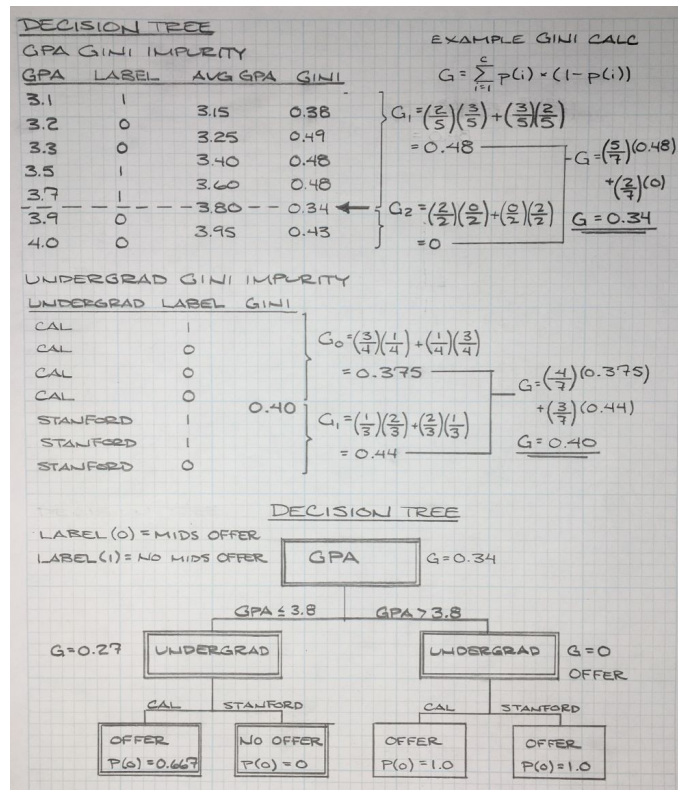 DECISION TREE
GPA GINI IMPURITY
EXAMPLE GINI CALC
GPA LABEL AVG GPA GINI
G = Σ p(i) * (1-p(i))
c
i=1
3.1 1
3.15 0.38
3.2 0
3.25 0.49
3.3 0
3.40 0.48
3.5 1
3.60 0.48
3.7 1
3.80 0.34
3.9 0
3.95 0.43
4.0 0
G1 = (2/5)(3/5) + (3/5)(2/5)
= 0.48
G2 = (2/2)(0/2) + (0/2)(2/2)
= 0
G = (5/7)(0.48)
+ (2/7)(0)
G = 0.34
UNDERGRAD GINI IMPURITY
UNDERGRAD LABEL GINI
CAL 1
CAL 0
CAL 0
CAL 0
STANFORD 1
STANFORD 1
STANFORD 0
0.40
G0 = (3/4)(1/4) + (1/4)(3/4)
= 0.375
G1 = (1/3)(2/3) + (2/3)(1/3)
= 0.44
G = (4/7)(0.375)
+ (3/7)(0.44)
G = 0.40
DECISION TREE
LABEL (0) = MIDS OFFER
LABEL (1) = NO MIDS OFFER
GPA G = 0.34
GPA ≤ 3.8 GPA > 3.8
G = 0.27 UNDERGRAD UNDERGRAD G = 0
OFFER
CAL STANFORD CAL STANFORD
OFFER NO OFFER OFFER OFFER
P(0) = 0.667 P(0) = 0 P(0) = 1.0 P(0) = 1.0